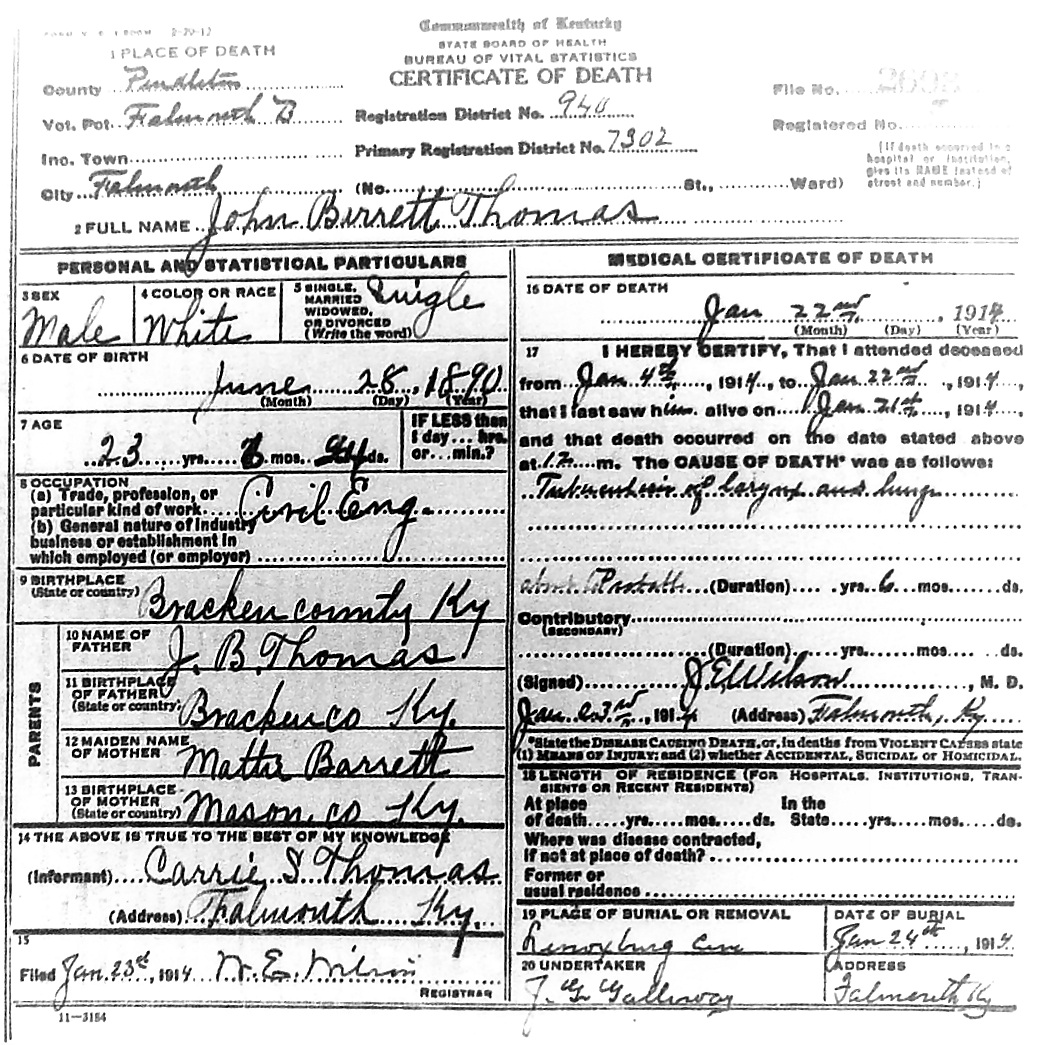 Commonwealth of Kentucky
STATE BOARD OF HEALTH
BUREAU OF VITAL STATISTICS
CERTIFICATE OF DEATH
2-20-12
1 PLACE OF DEATH
County Pendleton
Vot. Pct. Falmouth B
Inc. Town
City Falmouth
Registration District No. 940
Primary Registration District No. 7302
(No. St., Ward)
File No.
Registered No.
(If death occurred in a
hospital or institution,
give its NAME instead of
street and number.)
2 FULL NAME John Birrett Thomas
PERSONAL AND STATISTICAL PARTICULARS
3 SEX
Male
4 COLOR OR RACE
White
5 SINGLE,
MARRIED
WIDOWED,
OR DIVORCED
(Write the word)
Single
6 DATE OF BIRTH
June 28, 1890
(Month) (Day) (Year)
7 AGE
23 yrs. mos. ds.
IF LESS than
1 day ... hrs.
or ... min.?
8 OCCUPATION
(a) Trade, profession, or
particular kind of work Civil Eng.
(b) General nature of Industry
business or establishment in
which employed (or employer)
9 BIRTHPLACE
(State or country)
Bracken county Ky
PARENTS
10 NAME OF
FATHER
J. B. Thomas
11 BIRTHPLACE
OF FATHER
(State or country)
Bracken co Ky.
12 MAIDEN NAME
OF MOTHER
Mattie Barrett
13 BIRTHPLACE
OF MOTHER
(State or country)
Mason, co Ky.
14 THE ABOVE IS TRUE TO THE BEST OF MY KNOWLEDGE
(Informant) Carrie S Thomas
(Address) Falmouth Ky.
15
Filed Jan. 23rd, 1914 W. E. Wilson
REGISTRAR
11-3184
MEDICAL CERTIFICATE OF DEATH
16 DATE OF DEATH
Jan 22nd, 1914
(Month) (Day) (Year)
17 I HEREBY CERTIFY, That I attended deceased
from Jan 4th, 1914, to Jan 22nd, 1914,
that I last saw him alive on Jan 21st, 1914,
and that death occurred on the date stated above
at 12 m. The CAUSE OF DEATH* was as follows:
Tuberculosis of larynx and lungs
(Duration) yrs. 6 mos. ds.
Contributory
(SECONDARY)
(Duration) yrs. mos. ds.
(Signed) J E Wilson, M. D.
Jan 23rd, 1914 (Address) Falmouth, Ky
*State the DISEASE CAUSING DEATH, or, in deaths from VIOLENT CAUSES state
(1) MEANS OF INJURY; and (2) whether ACCIDENTAL, SUICIDAL or HOMICIDAL.
18 LENGTH OF RESIDENCE (FOR HOSPITALS, INSTITUTIONS, TRAN-
SIENTS OR RECENT RESIDENTS)
At place In the
of death yrs. mos. ds. State yrs. mos. ds.
Where was disease contracted,
If not at place of death?
Former or
usual residence
19 PLACE OF BURIAL OR REMOVAL
Lenoxburg Cem
DATE OF BURIAL
Jan 24th, 1914
20 UNDERTAKER
J. G. Galloway
ADDRESS
Falmouth Ky